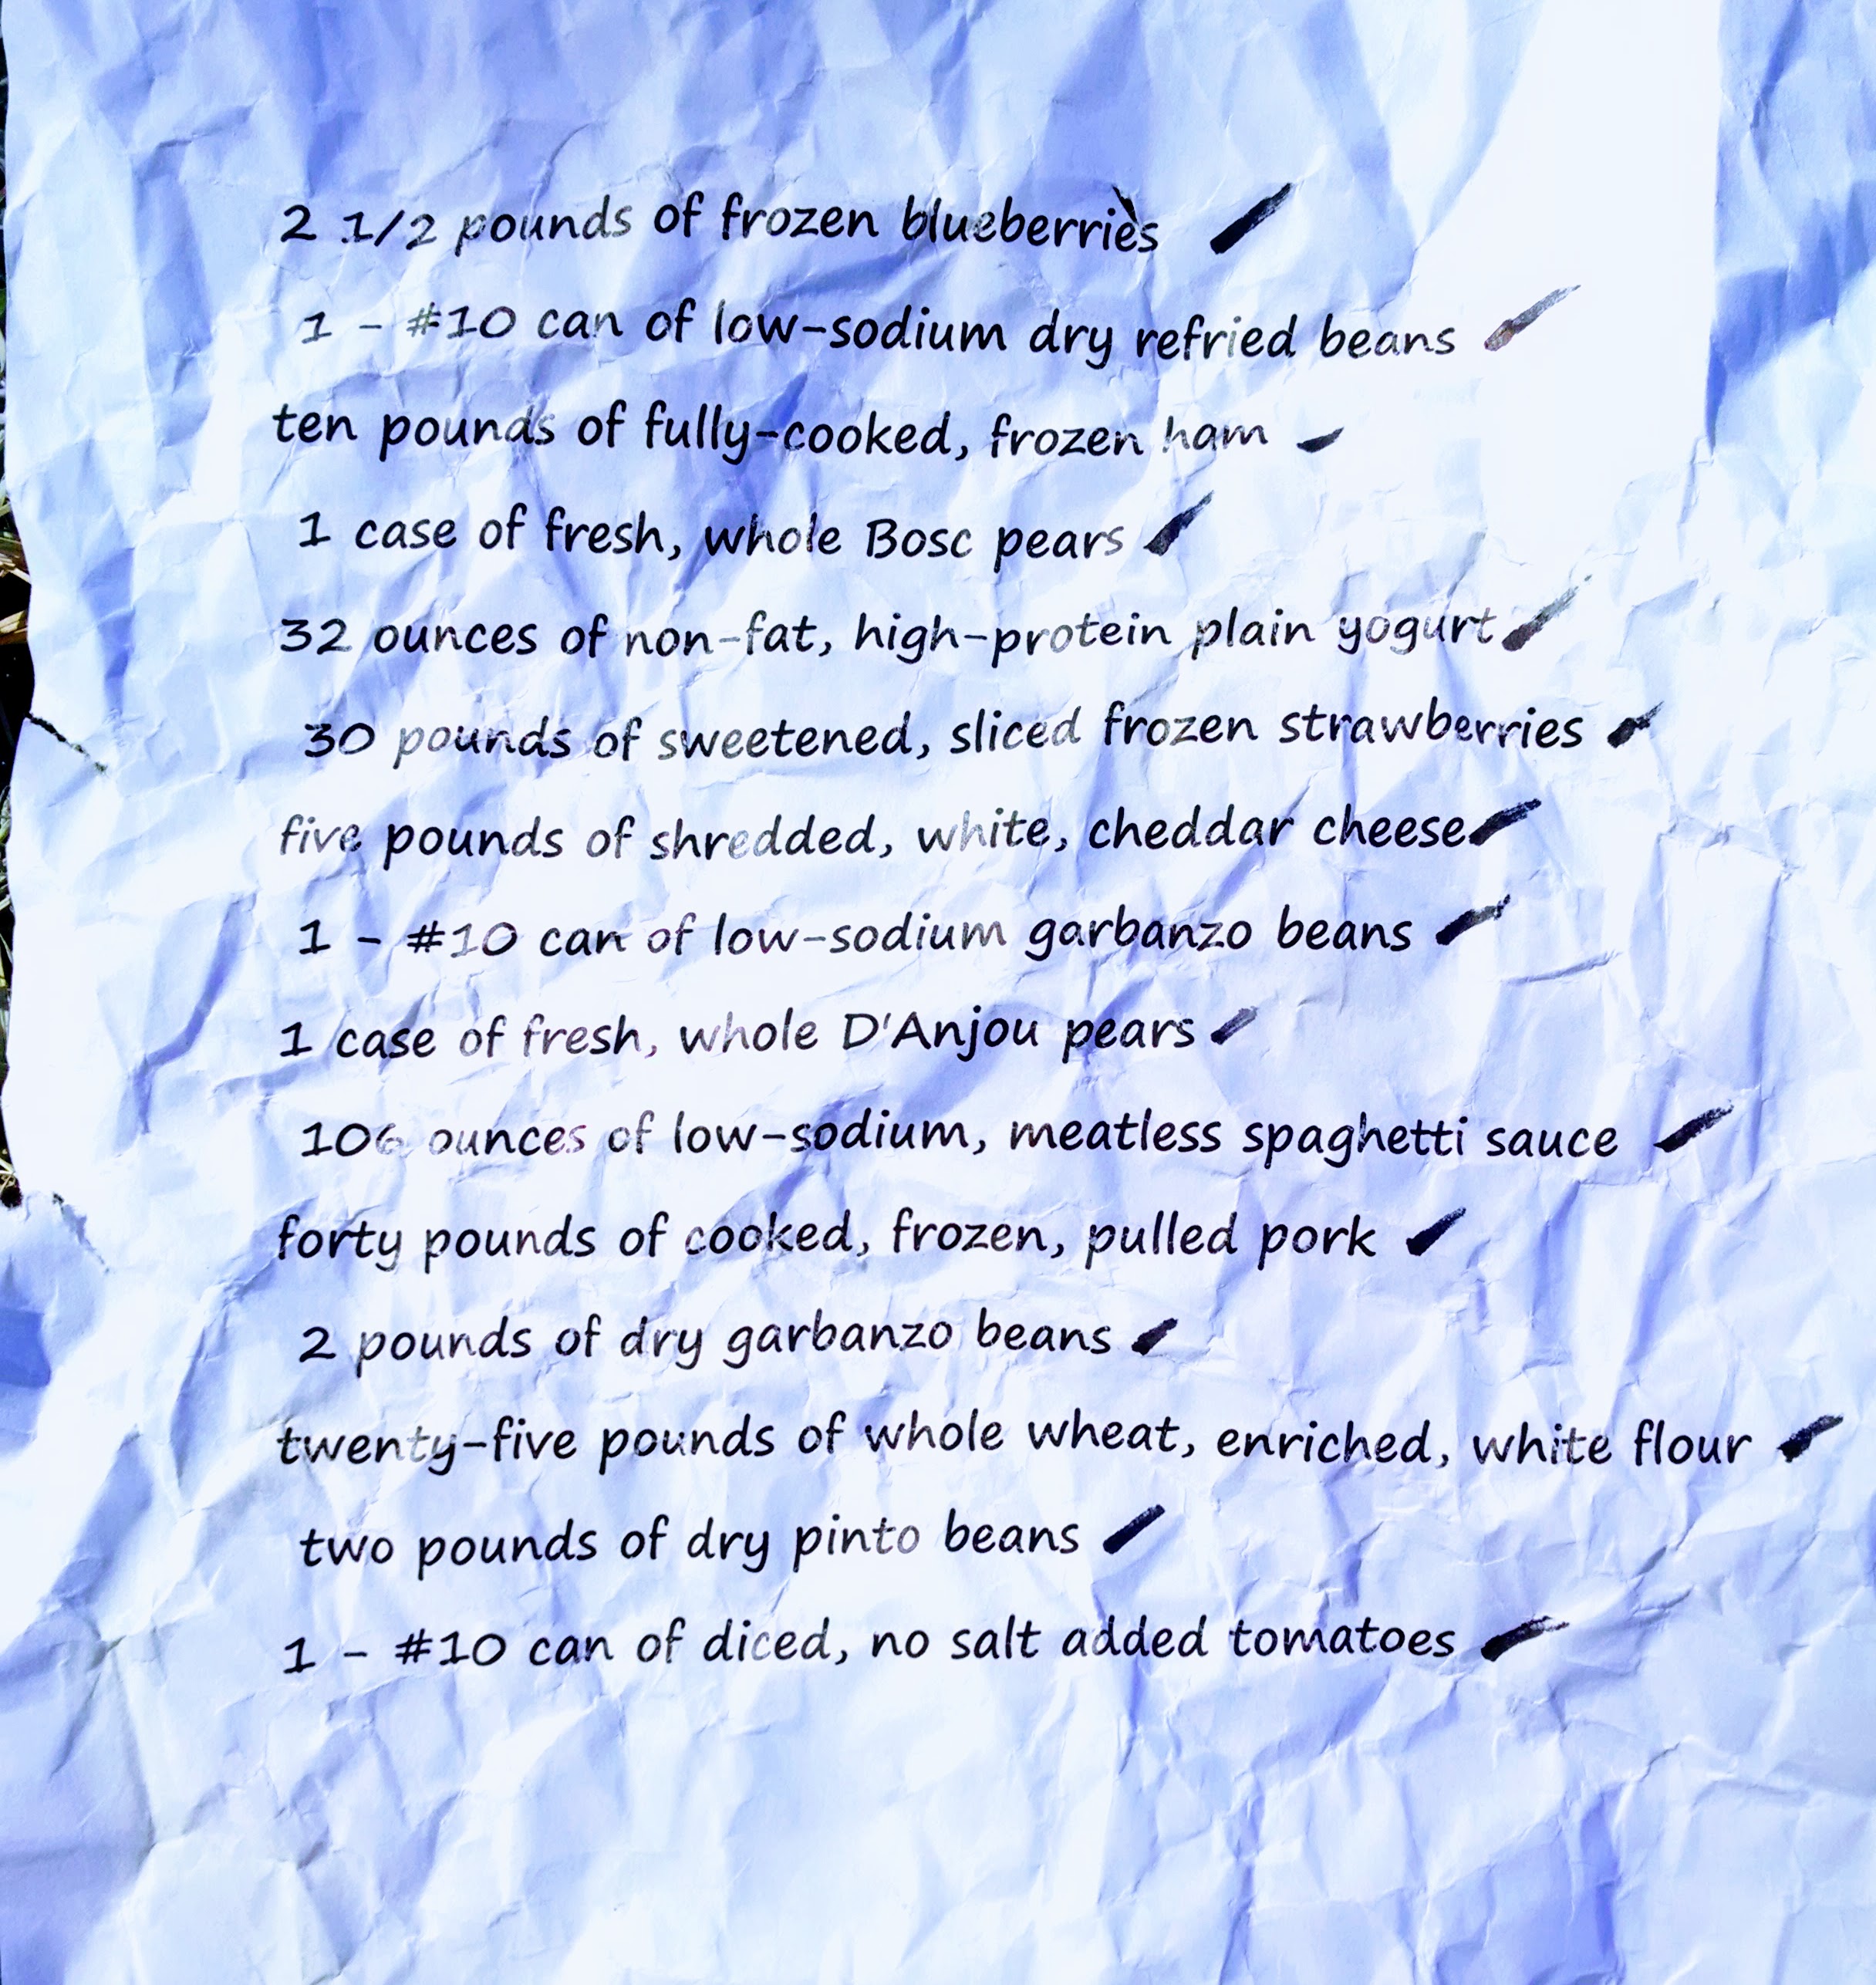 2 1/2 pounds of frozen blueberries
1 - #10 can of low-sodium dry refried beans
ten pounds of fully-cooked, frozen ham
1 case of fresh, whole Bosc pears
32 ounces of non-fat, high-protein plain yogurt
30 pounds of sweetened, sliced frozen strawberries
five pounds of shredded, white, cheddar cheese
1 - #10 can of low-sodium garbanzo beans
1 case of fresh, whole D'Anjou pears
106 ounces of low-sodium, meatless spaghetti sauce
forty pounds of cooked, frozen, pulled pork
2 pounds of dry garbanzo beans
twenty-five pounds of whole wheat, enriched, white flour
two pounds of dry pinto beans
1 - #10 can of diced, no salt added tomatoes